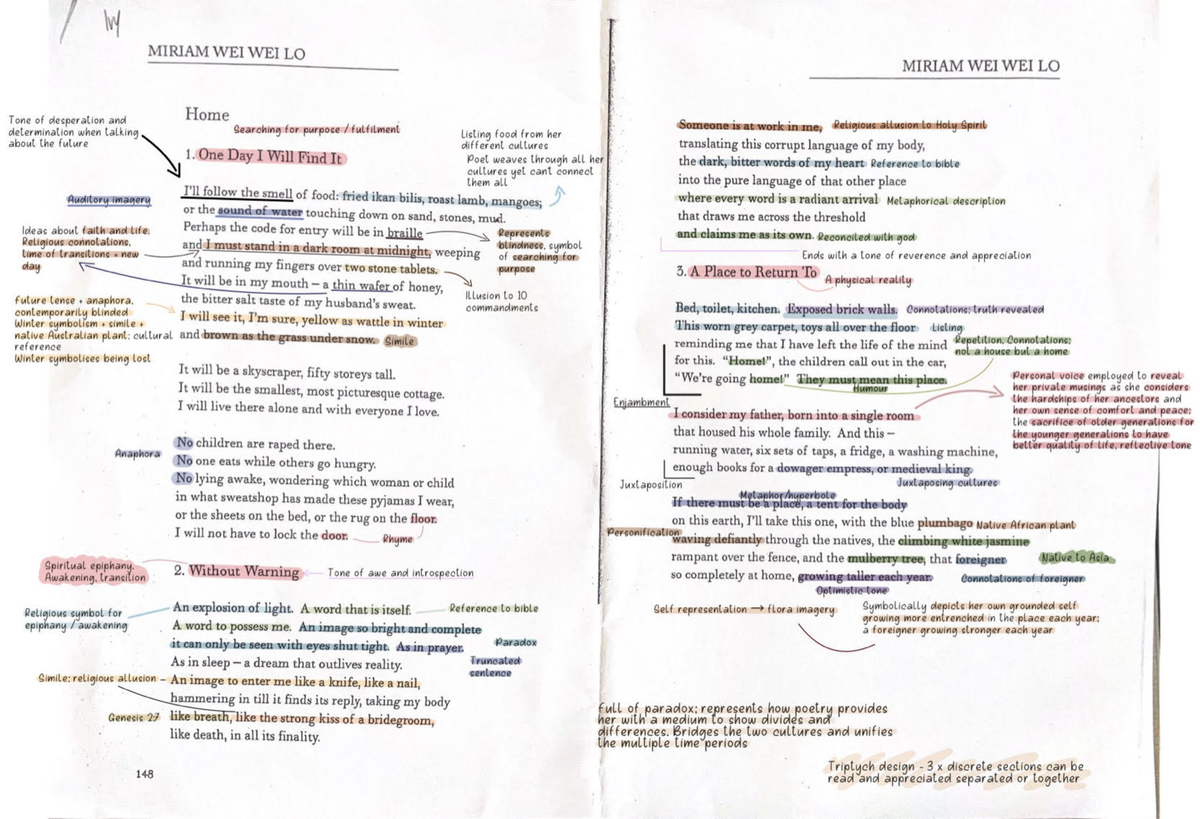 MIRIAM WEI WEI LO
Tone of desperation and
determination when talking
about the future
Home
Searching for purpose / fulfilment
1. One Day I Will Find It
Listing food from her
different cultures
Poet weaves through all her
cultures yet cant connect
them all
I'll follow the smell of food: fried ikan bilis, roast lamb, mangoes;
or the sound of water touching down on sand, stones, mud.
Perhaps the code for entry will be in braille
and I must stand in a dark room at midnight, weeping
and running my fingers over two stone tablets.
It will be in my mouth – a thin wafer of honey,
the bitter salt taste of my husband's sweat.
I will see it, I'm sure, yellow as wattle in winter
and brown as the grass under snow.
Simile
Auditory imagery
Ideas about faith and life.
Religious connotations,
time of transitions + new
day
Represents
blindness, symbol
of searching for
purpose
Illusion to 10
commandments
future tense + anaphora,
contemporarily blinded
Winter symbolism + simile +
native Australian plant; cultural
reference
Winter symbolises being lost
It will be a skyscraper, fifty storeys tall.
It will be the smallest, most picturesque cottage.
I will live there alone and with everyone I love.
Anaphora
No children are raped there.
No one eats while others go hungry.
No lying awake, wondering which woman or child
in what sweatshop has made these pyjamas I wear,
or the sheets on the bed, or the rug on the floor.
I will not have to lock the door.
Rhyme
Spiritual epiphany.
Awakening, transition
2. Without Warning
Tone of awe and introspection
Religious symbol for
epiphany / awakening
An explosion of light. A word that is itself.
Reference to bible
A word to possess me. An image so bright and complete
it can only be seen with eyes shut tight. As in prayer.
Paradox
As in sleep – a dream that outlives reality.
Truncated
sentence
Simile; religious allusion –
An image to enter me like a knife, like a nail,
hammering in till it finds its reply, taking my body
Genesis 2:7
like breath, like the strong kiss of a bridegroom,
like death, in all its finality.
148
MIRIAM WEI WEI LO
Someone is at work in me,
Religious allusion to Holy Spirit
translating this corrupt language of my body,
the dark, bitter words of my heart
Reference to bible
into the pure language of that other place
where every word is a radiant arrival
Metaphorical description
that draws me across the threshold
and claims me as its own.
Reconciled with god
Ends with a tone of reverence and appreciation
3. A Place to Return To
A physical reality
Bed, toilet, kitchen. Exposed brick walls.
Connotations; truth revealed
This worn grey carpet, toys all over the floor
Listing
reminding me that I have left the life of the mind
for this. "Home!", the children call out in the car,
"We're going home!" They must mean this place.
Humour
Repetition, Connotations;
not a house but a home
Enjambment
I consider my father, born into a single room
that housed his whole family. And this –
running water, six sets of taps, a fridge, a washing machine,
enough books for a dowager empress, or medieval king.
Personal voice employed to reveal
her private musings as she considers
the hardships of her ancestors and
her own sense of comfort and peace;
the sacrifice of older generations for
the younger generations to have
better quality of life, reflective tone
Juxtaposition
Juxtaposing cultures
Metaphor/hyperbole
If there must be a place, a tent for the body
on this earth, I'll take this one, with the blue plumbago
Native African plant
Personification
waving defiantly through the natives, the climbing white jasmine
rampant over the fence, and the mulberry tree, that foreigner
Native to Asia
so completely at home, growing taller each year.
Connotations of foreigner
Optimistic tone
Self representation → flora imagery
Symbolically depicts her own grounded self
growing more entrenched in the place each year;
a foreigner growing stronger each year
full of paradox; represents how poetry provides
her with a medium to show divides and
differences. Bridges the two cultures and unifies
the multiple time periods
Triptych design - 3 x discrete sections can be
read and appreciated separated or together